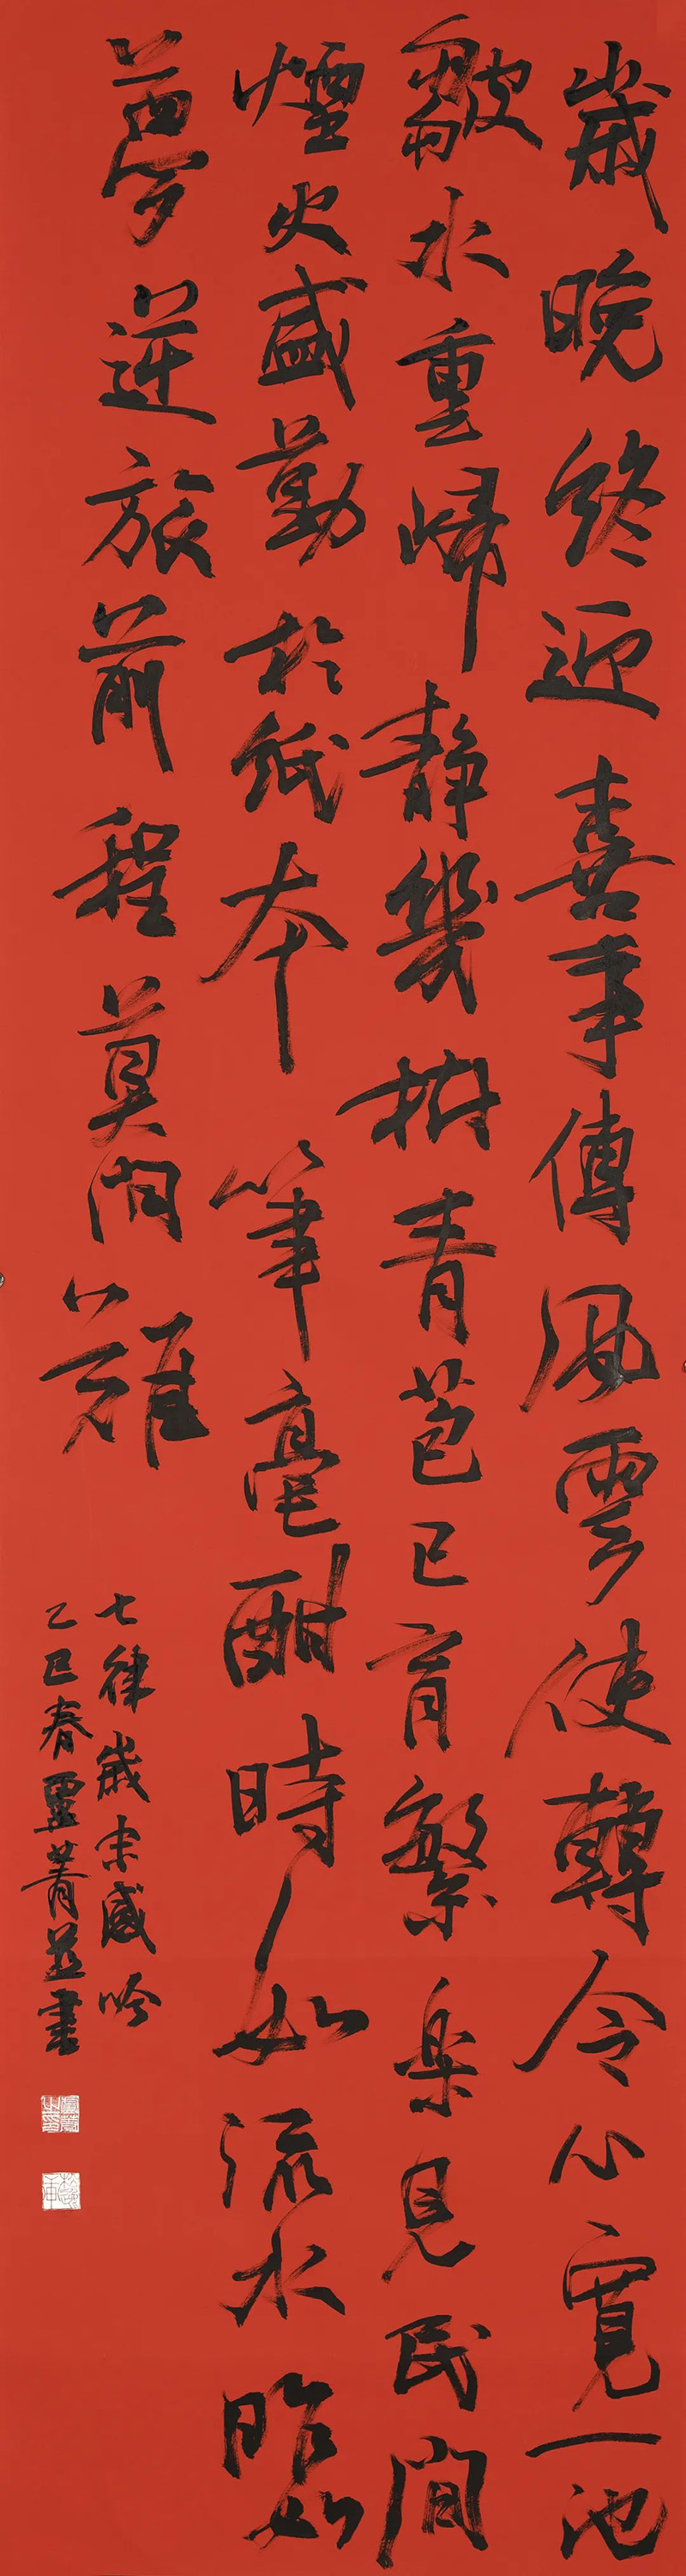 歲晚終近喜事傳風雲使轉令心寬一池
皺水重歸靜幾樹青苞已育繁樂見民間
煙火盛勤於紙本筆毫酣時如流水昨如
夢逆旅前程莫問難
七律歲末感吟
乙巳春菁並書